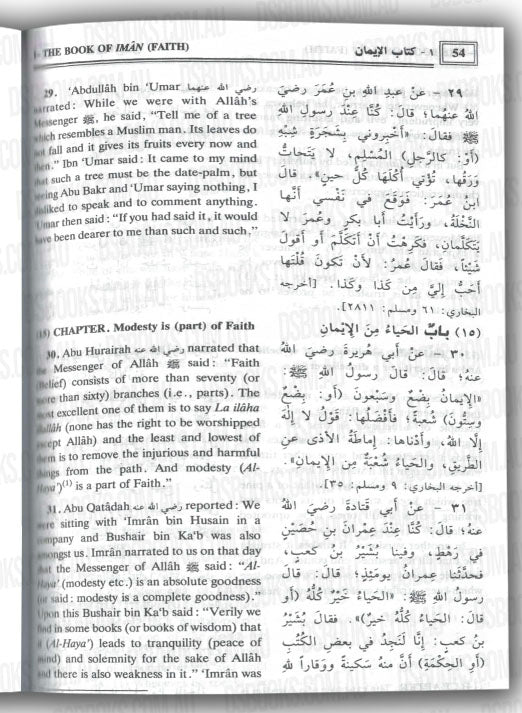 THE BOOK OF IMÂN (FAITH)
١ - كتاب الإيمان
54
29. 'Abdullâh bin 'Umar رضي الله عنهما
narrated: While we were with Allâh's
Messenger ﷺ, he said, “Tell me of a tree
which resembles a Muslim man. Its leaves do
not fall and it gives its fruits every now and
then.” Ibn 'Umar said: It came to my mind
that such a tree must be the date-palm, but
seeing Abu Bakr and 'Umar saying nothing, I
disliked to speak and to comment anything.
'Umar then said: “If you had said it, it would
have been dearer to me than such and such.”
(15) CHAPTER. Modesty is (part) of Faith
30. Abu Hurairah رضي الله عنه narrated that
the Messenger of Allâh ﷺ said: “Faith
(Belief) consists of more than seventy (or
more than sixty) branches (i.e., parts). The
most excellent one of them is to say La ilâha
illallâh (none has the right to be worshipped
except Allâh) and the least and lowest of
them is to remove the injurious and harmful
things from the path. And modesty (Al-
Haya')(1) is a part of Faith.”
31. Abu Qatâdah رضي الله عنه reported: We
were sitting with 'Imrân bin Husain in a
company and Bushair bin Ka'b was also
amongst us. Imrân narrated to us on that day
that the Messenger of Allâh ﷺ said: “Al-
Haya' (modesty etc.) is an absolute goodness
(or said: modesty is a complete goodness).”
Upon this Bushair bin Ka'b said: “Verily we
find in some books (or books of wisdom) that
it (Al-Haya') leads to tranquility (peace of
mind) and solemnity for the sake of Allâh
and there is also weakness in it.” 'Imrân was
٢٩ - عَنْ عبدِ اللهِ بنِ عُمَرَ رضيَ
اللهُ عنْهُما؛ قالَ: كُنَّا عِنْدَ رسولِ اللهِ
ﷺ فقالَ: «أَخْبِروني بِشَجَرَةٍ شِبْهِ
(أوْ: كالرَّجلِ) المُسْلِمِ، لا يَتَحاتُّ
وَرَقُها، تُؤْتي أُكُلَها كُلَّ حينٍ». قال
ابنُ عُمَرَ: فَوَقَعَ في نَفْسي أنَّها
النَّخْلَةُ، ورَأَيْتُ أبا بكرٍ وعُمَرَ لا
يَتَكَلَّمانِ، فكَرِهْتُ أَنْ أَتَكَلَّمَ أو أقولَ
شَيْئاً، فَقالَ عُمرُ: لأنْ تَكونَ قُلْتَها
أَحَبُّ إليَّ مِن كَذا وكَذا. [أخرجه
البخاري: ٦١ ومسلم: ٢٨١١].
(١٥) بابٌ الحَياءُ مِنَ الإِيْمانِ
٣٠ - عَنْ أبي هُريرةَ رَضيَ اللهُ
عنهُ؛ قالَ: قالَ رسولُ اللهِ ﷺ:
«الإيمانُ بِضْعٌ وسَبْعونَ (أو: بِضْعٌ
وسِتُّونَ) شُعبةً؛ فأفْضَلُها: قَوْلُ لا إِلَهَ
إلَّا اللهُ، وأدْناها: إماطَةُ الأذى عنِ
الطَّريقِ، والحَياءُ شُعْبَةٌ مِن الإيمانِ».
[أخرجه البخاري: ٩ ومسلم: ٣٥].
٣١ - عَنْ أبي قَتادةَ رَضيَ اللهُ
عنهُ؛ قالَ: كُنَّا عِنْدَ عِمْرانَ بنِ حُصَيْنٍ
في رَهْطٍ، وفينا بُشَيْرُ بنُ كعبٍ،
فحدَّثَنا عِمرانُ يومَئِذٍ؛ قالَ: قالَ
رسولُ اللهِ ﷺ: «الحَياءُ خَيْرٌ كُلُّهُ (أو
قالَ: الحَياءُ كُلُّهُ خيرٌ)». فقالَ بُشَيْرُ
بنُ كعبٍ: إنَّا لَنَجِدُ في بعضِ الكُتُبِ
(أوِ الحِكْمَةِ) أنَّ منهُ سَكينةً ووَقاراً للهِ
DSBOOKS.COM.AU